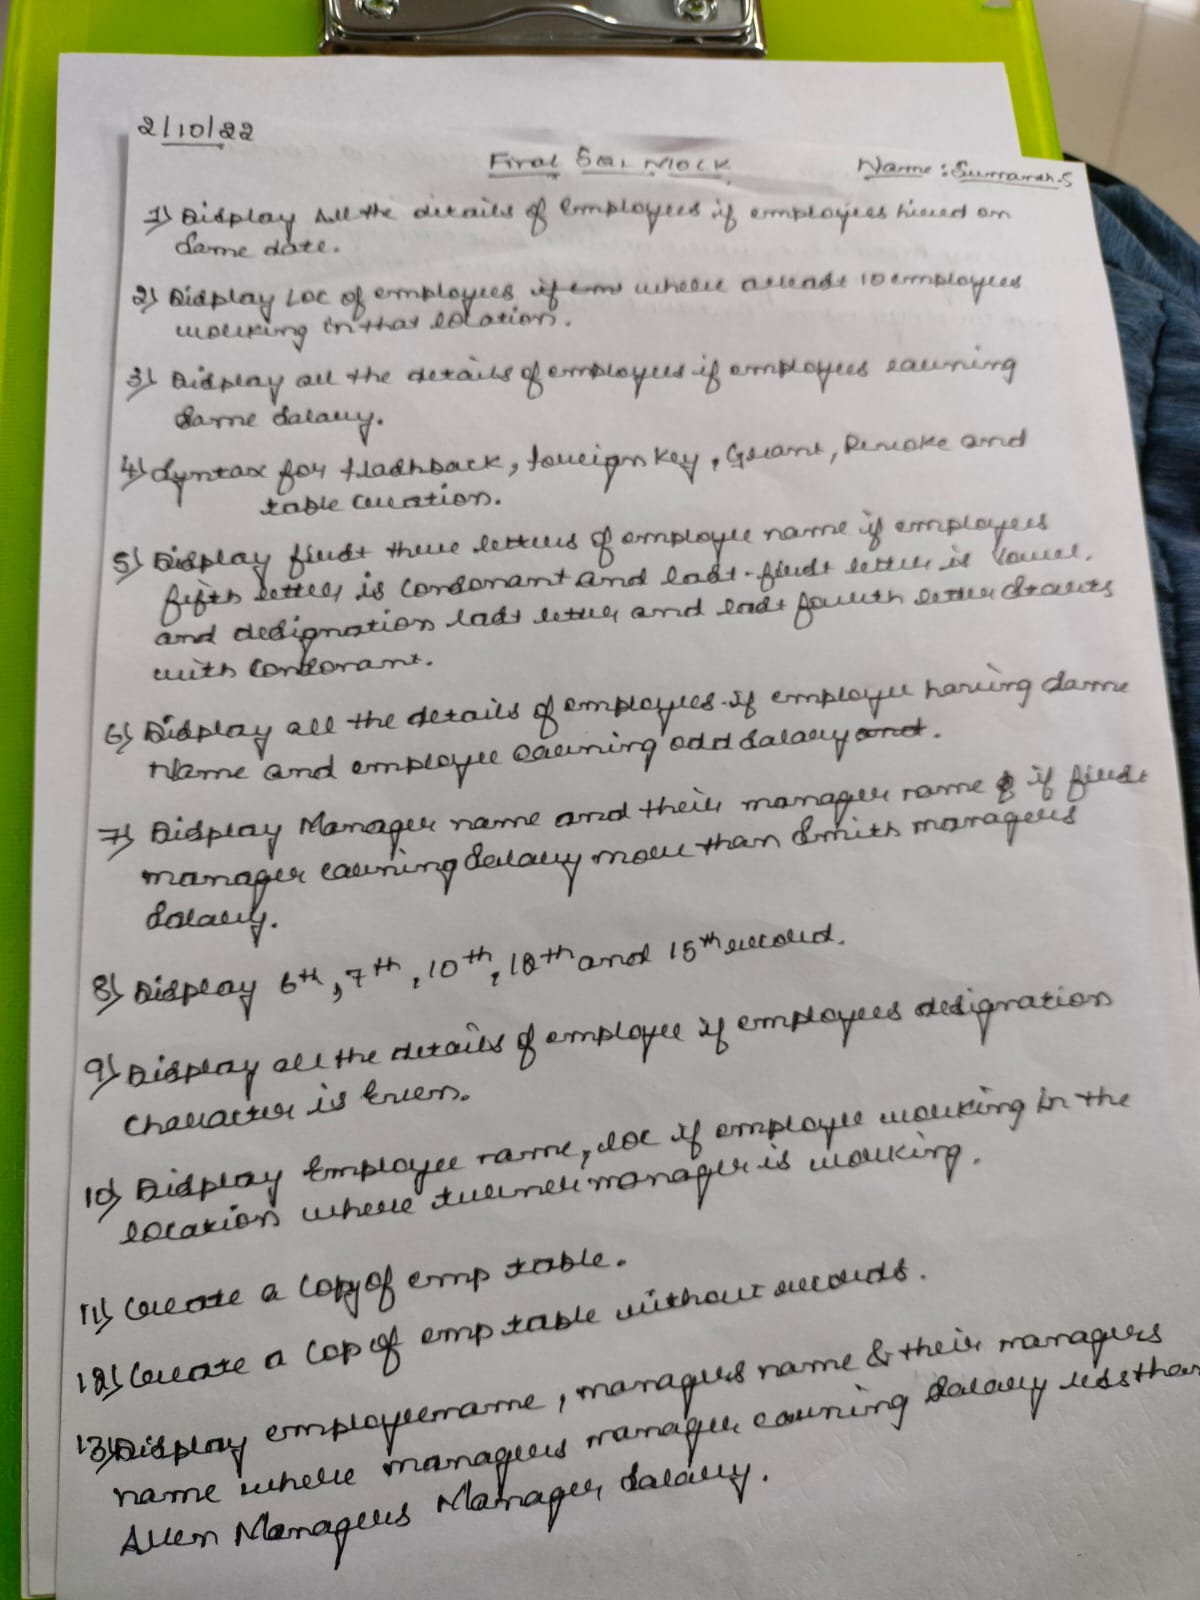 2/10/22
Final SQL Mock
Name: Sumanth.S
1) Display All the details of Employees if employees hired on
Same date.
2) Display Loc of employees if em where atleast 10 employees
working in that location.
3) Display all the details of employees if employees earning
Same Salary.
4) Syntax for flashback, foreign key, Grant, Revoke and
table creation.
5) Display first three letters of employee name if employees
fifth letter is consonant and last-first letter is Vowel.
and designation last letter and last fourth letter Starts
with Consonant.
6) Display all the details of employees if employee having same
Name and employee earning odd salary and.
7) Display Manager name and their manager name if first
manager earning Salary more than Smith managers
Salary.
8) Display 6th, 7th, 10th, 12th and 15th record.
9) Display all the details of employee if employees designation
Character is Even.
10) Display Employee name, loc if employee working in the
location where turner manager is working.
11) Create a Copy of emp table.
12) Create a Cop of emp table without records.
13) Display employeename, managers name & their managers
name where managers manager earning Salary less than
Allen Managers Manager Salary.